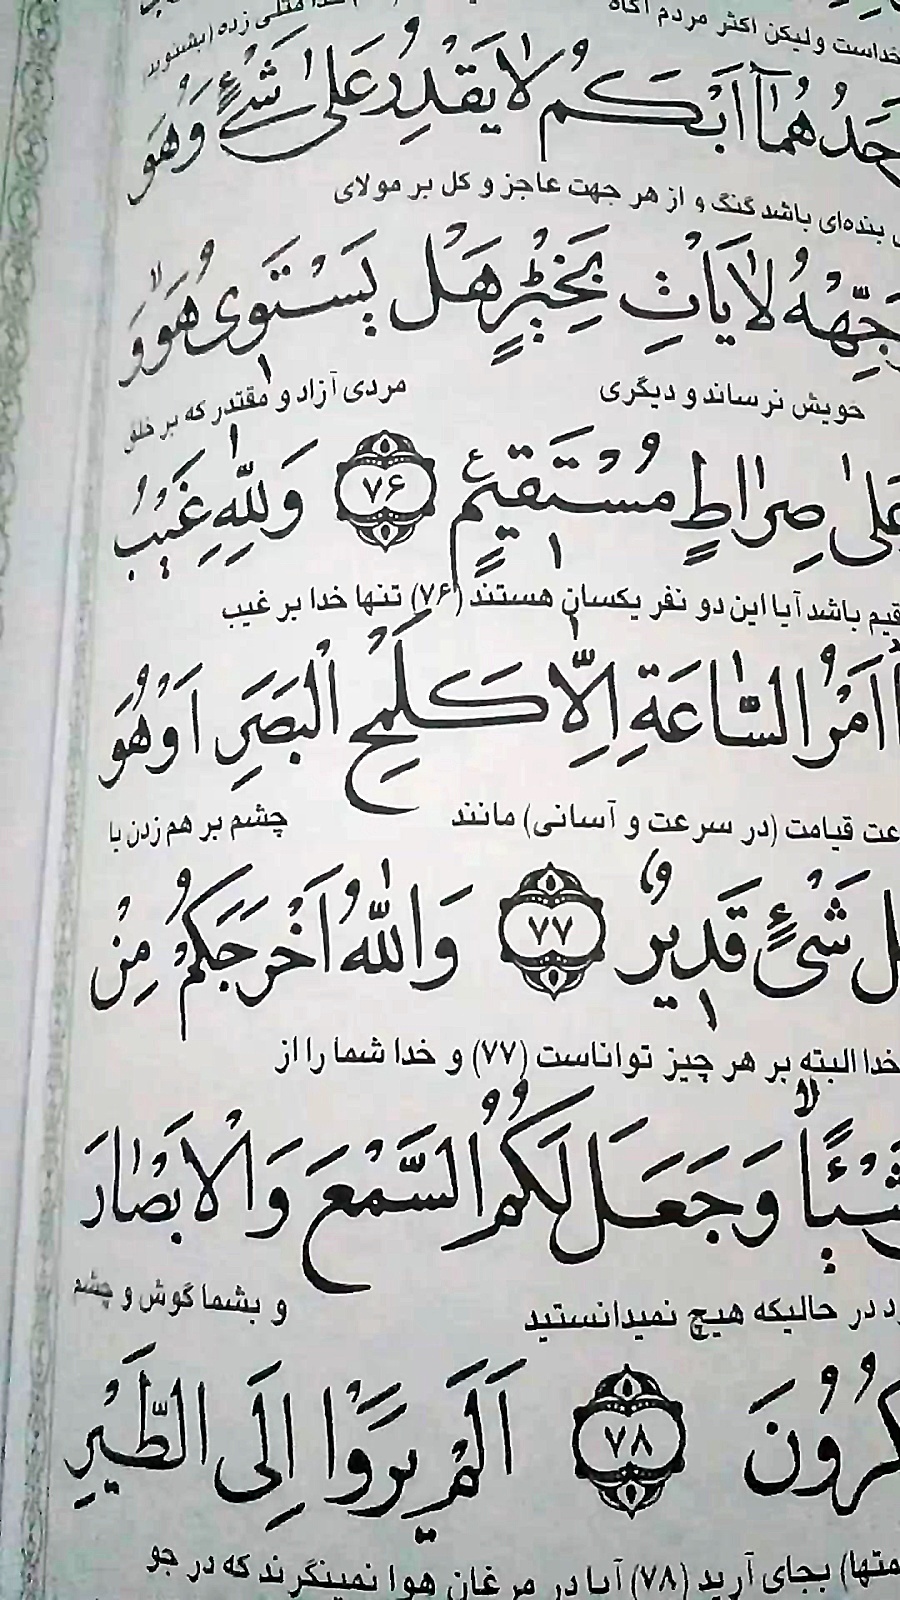 خداست ولیکن اکثر مردم آگاه
خدا مثلی زده (بشنوید
حَدُهُمَآ اَبْكَمُ لَا يَقْدِرُ عَلٰى شَىْءٍ وَهُوَ
بنده‌ای باشد گنگ و از هر جهت عاجز و کل بر مولای
جِّهْهُ لَا يَأْتِ بِخَيْرٍ هَلْ يَسْتَوِى هُوَ وَ
خویش نرساند و دیگری مردی آزاد و مقتدر که بر خلق
عَلٰى صِرٰاطٍ مُسْتَقيمٍ ﴿۷۶﴾ وَلِلّٰهِ غَيْبُ
قیم باشد آیا این دو نفر یکسان هستند (۷۶) تنها خدا بر غیب
اَمْرُ السّٰاعَةِ اِلّٰا كَلَمْحِ الْبَصَرِ اَوْ هُوَ
عت قیامت (در سرعت و آسانی) مانند چشم بر هم زدن یا
ل شَىْءٍ قَديرٌ ﴿۷۷﴾ وَاللّٰهُ اَخْرَجَكُمْ مِنْ
خدا البته بر هر چیز تواناست (۷۷) و خدا شما را از
شَيْئًا وَجَعَلَ لَكُمُ السَّمْعَ وَالْاَبْصٰارَ
د در حالیکه هیچ نمیدانستید و بشما گوش و چشم
كُرُونَ ﴿۷۸﴾ اَلَمْ يَرَوْا اِلَى الطَّيْرِ
متها) بجای آرید (۷۸) آیا در مرغان هوا نمینگرند که در جو